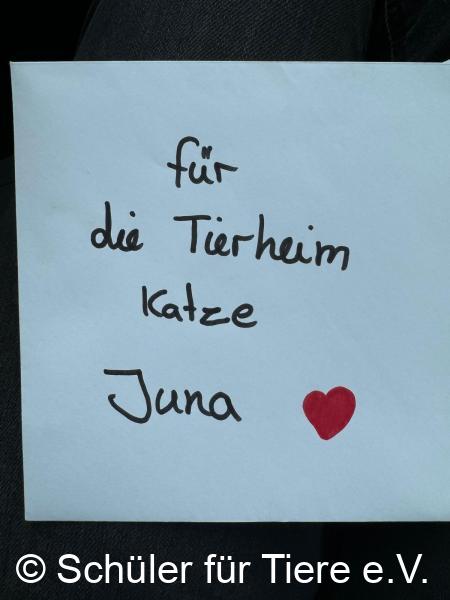 für
die Tierheim
Katze
Juna
© Schüler für Tiere e.V.